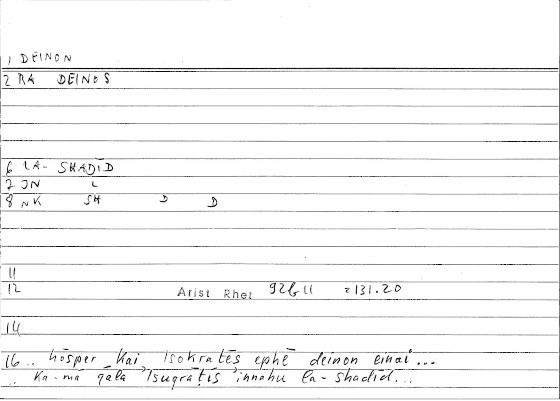 1 DEINON
2 RA DEINOS
6 LA- SHADĪD
7 JN L
8 NK SH D D
11
12 Arist Rhet 92b11 =131.20
14
16 .. hōsper kai Isokratēs ephē deinon einai...
.. ka-mā qāla ʾIsuqrāṭīs ʾinnahu la-shadīd...